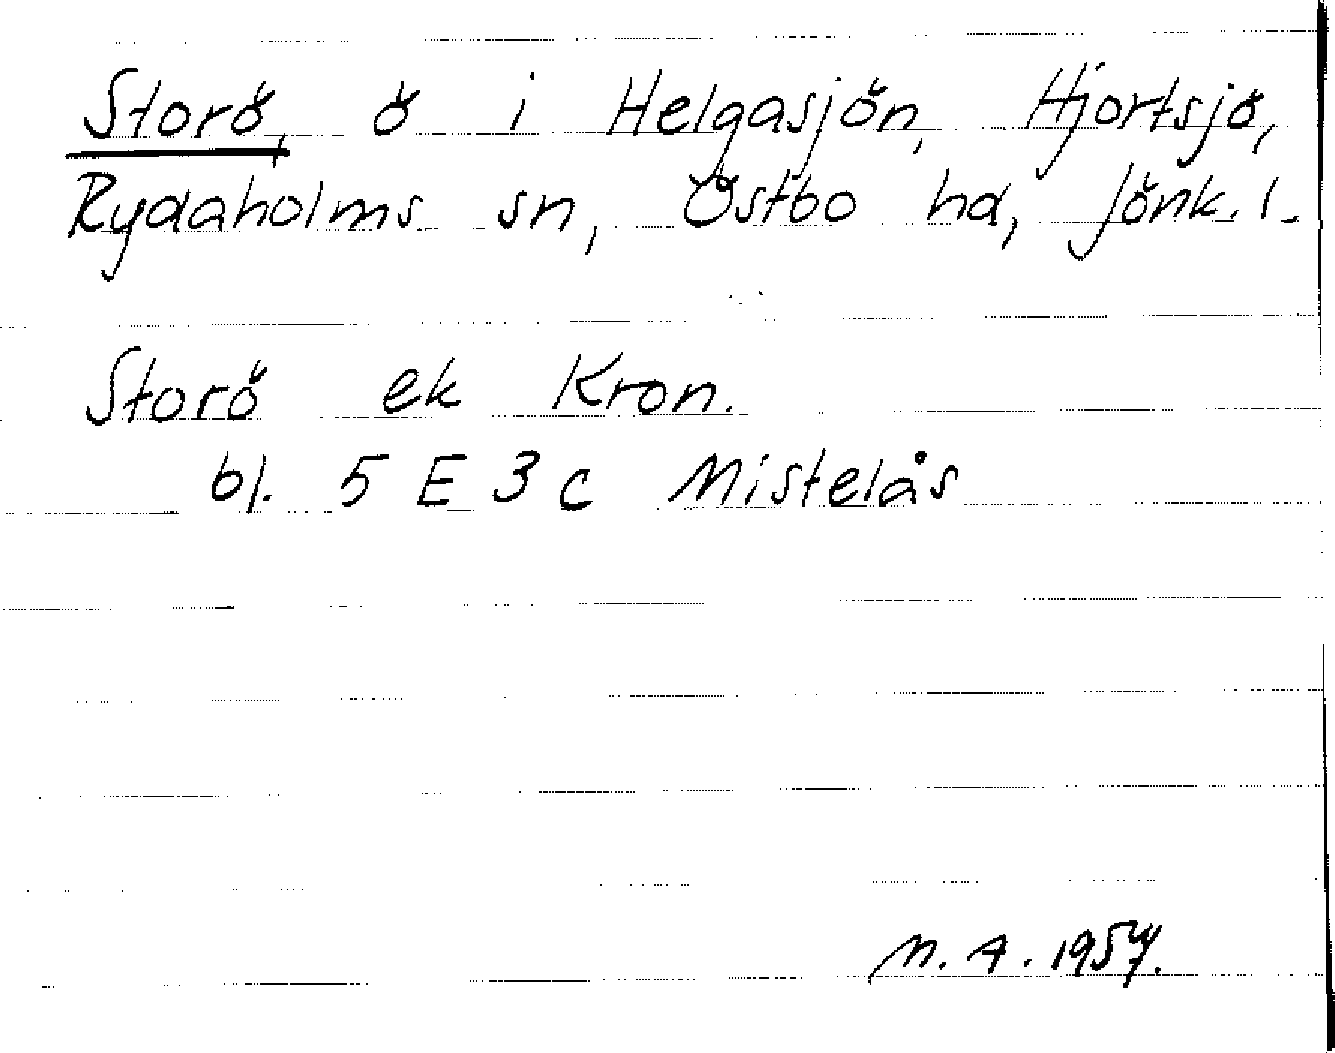 Storö, ö i Helgasjön, Hjortsjö,
Rydaholms sn, Östbo hd, Jönk. l.
Storö ek Kron.
bl. 5 E 3 c Mistelås
M. A. 1957.